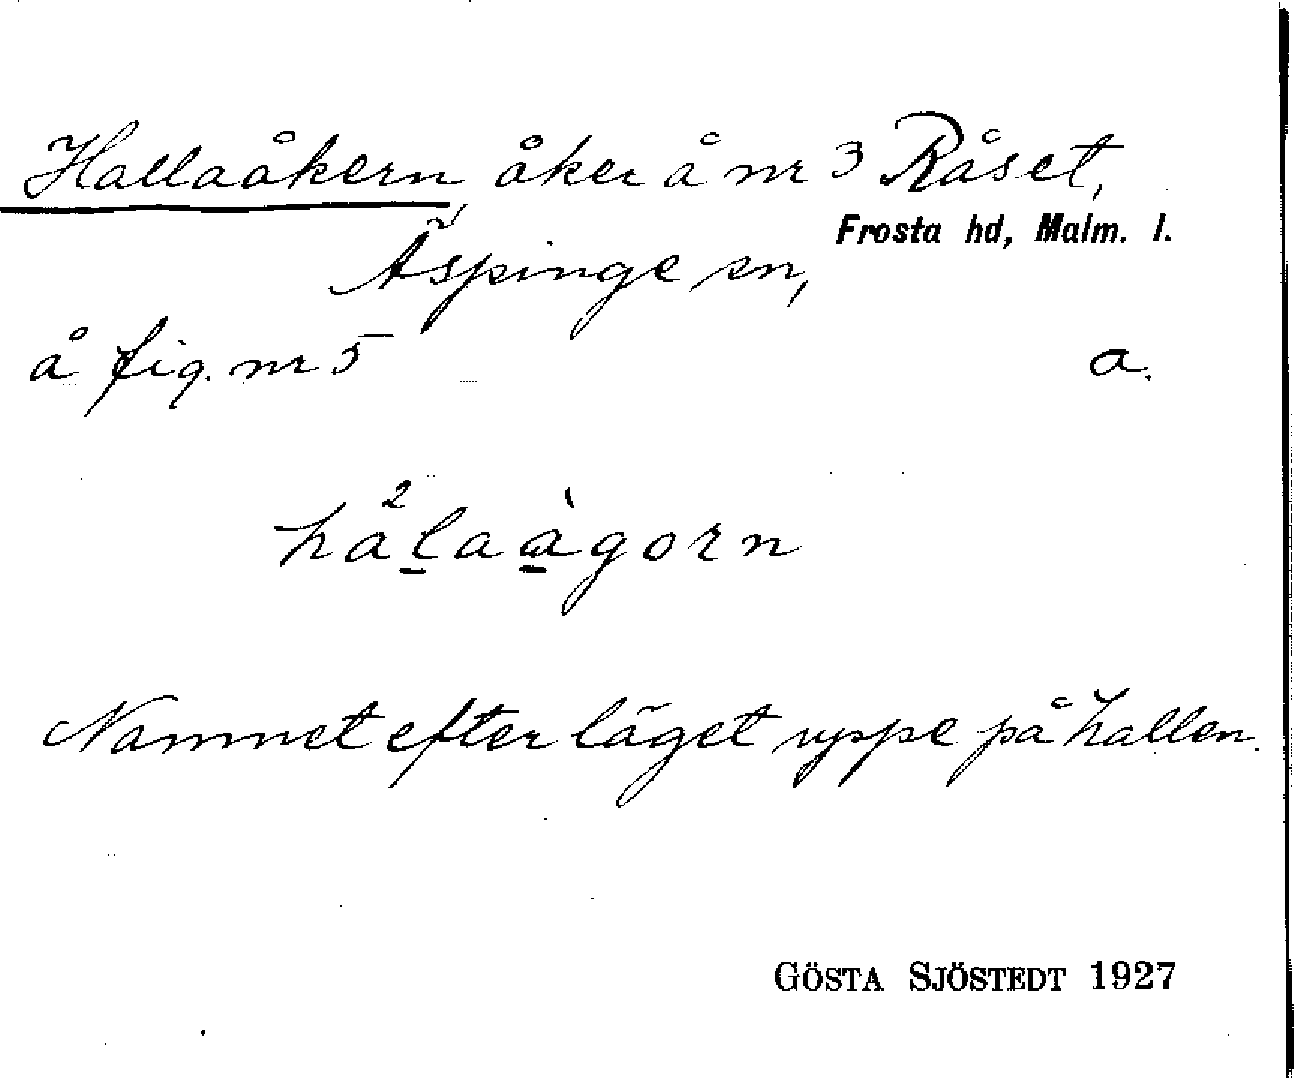 Hallaåkern, åker å nr 3 Råset,
Frosta hd, Malm. l.
Äspinge sn,
å fig. nr 5 a.
hå²la à̱gorn
Namnet efter läget uppe på hallen.
GÖSTA SJÖSTEDT 1927